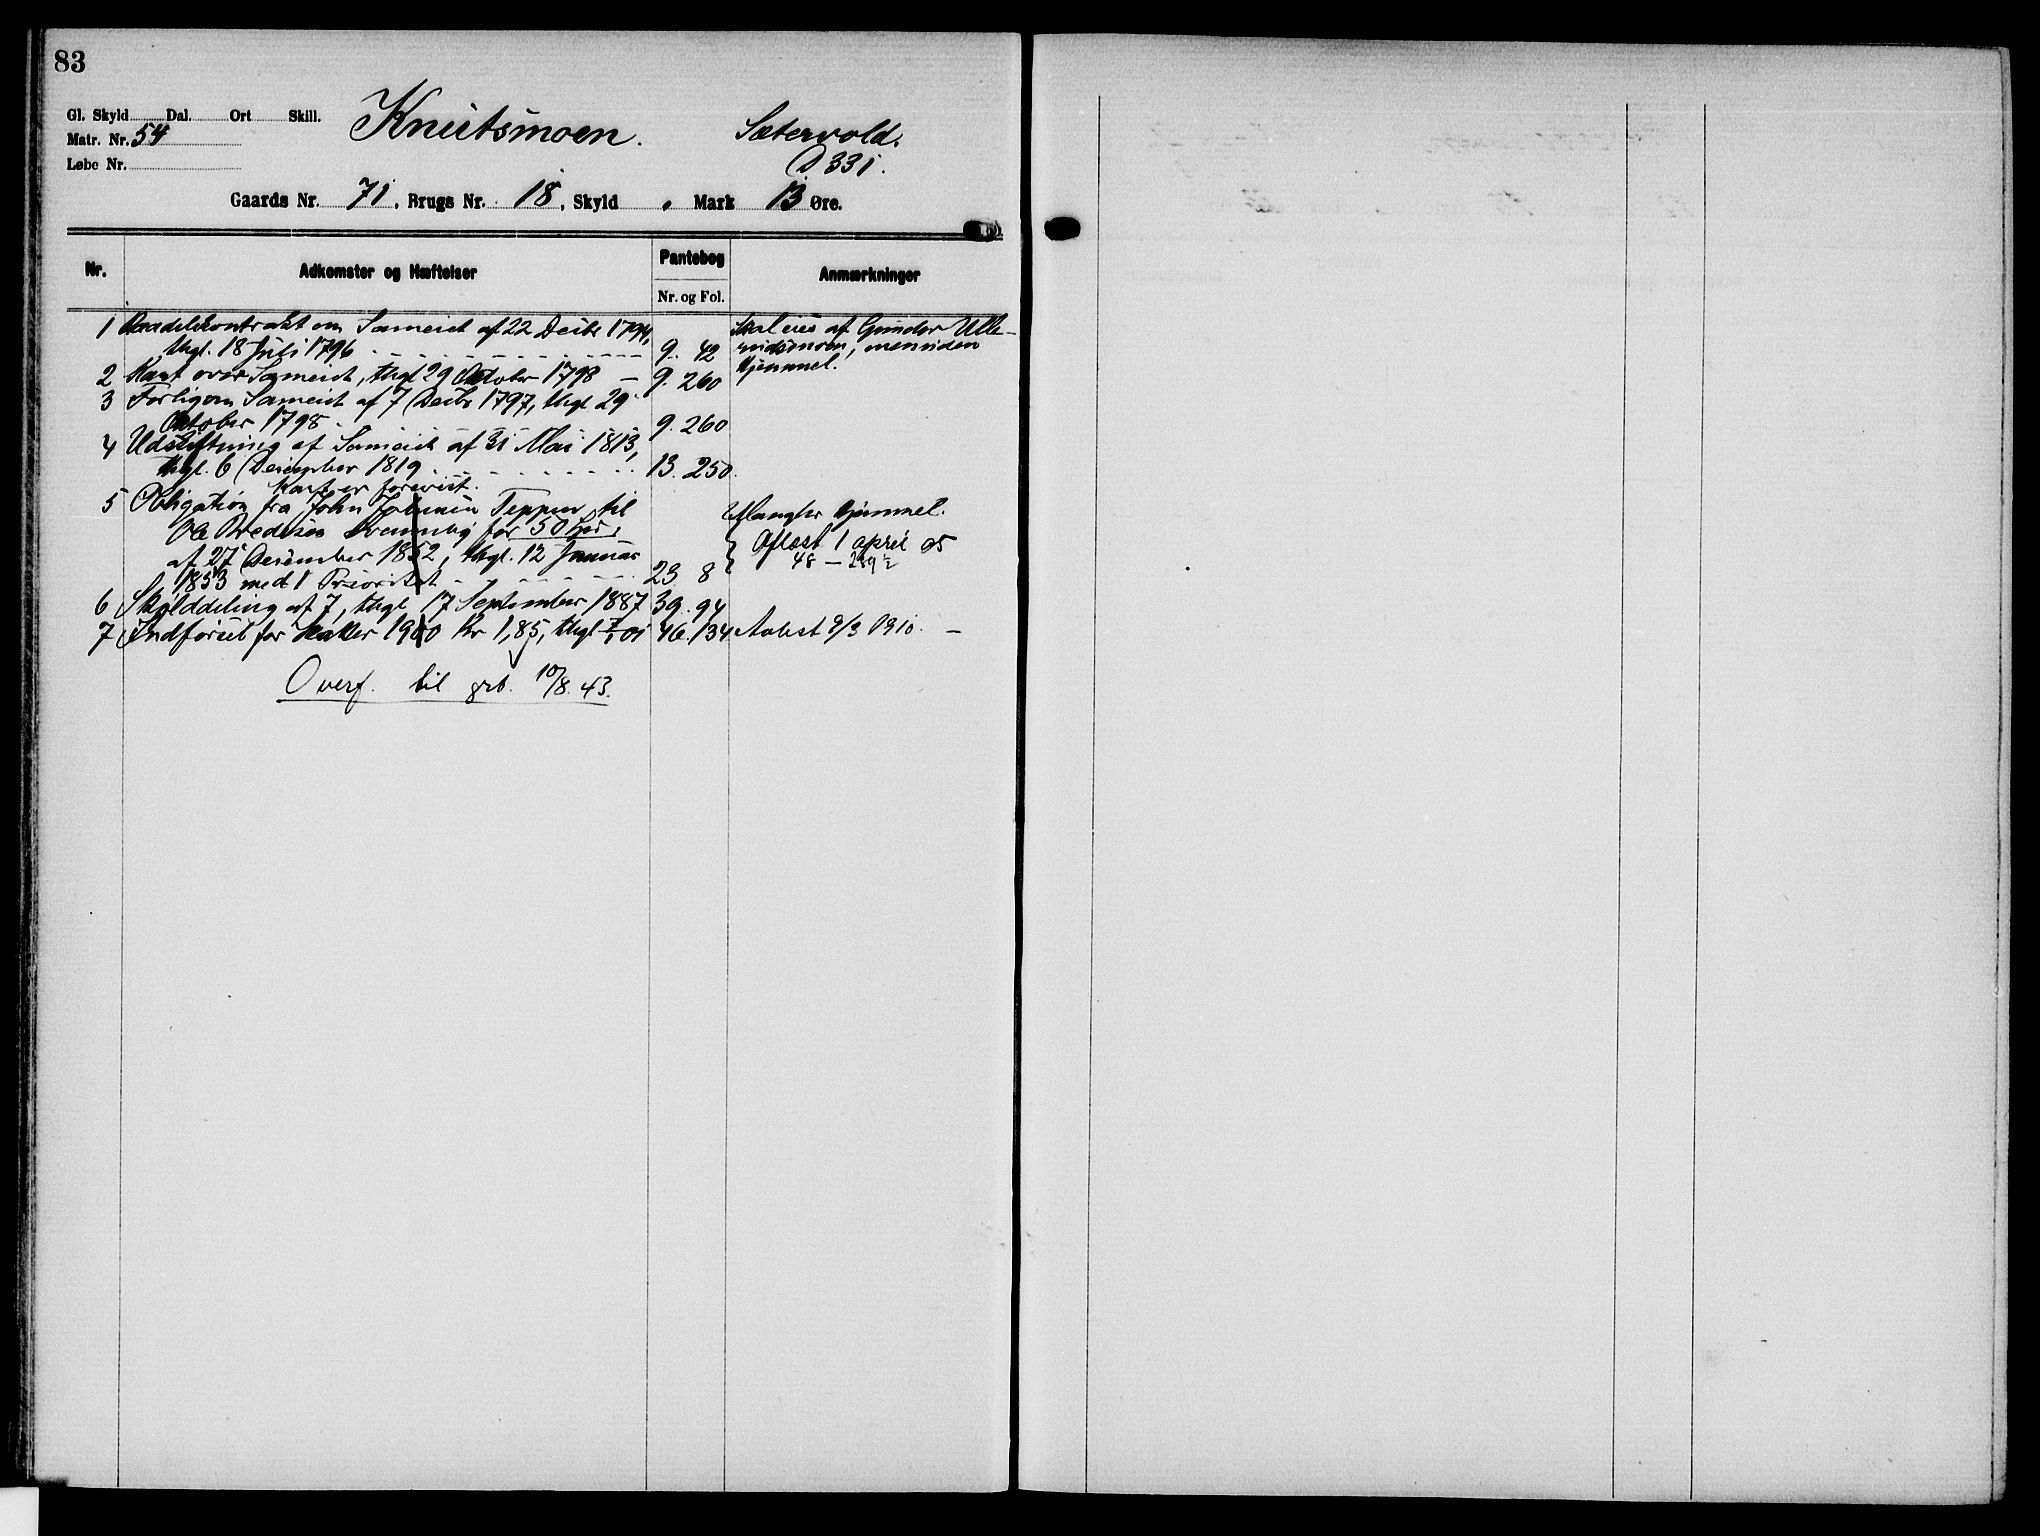 83
Gl. Skyld Dal. Ort Skill.
Matr. Nr. 54
Løbe Nr.
Knutsmoen. Sætervold.
D 331.
Gaards Nr. 71, Brugs Nr. 18, Skyld , Mark 13 Øre.
Nr. Adkomster og Hæftelser Pantebog Anmærkninger
Nr. og Fol.
1 Raadelskontrakt om Sameiet af 22 Decbr 1794,
thgl. 18 Juli 1796 9. 42
Skal eies af Gunder Ulle-
rudsmoen, men uden
Hjemmel.
2 Kart over Sameiet, thgl 29 Oktober 1798 — 9. 260
3 Forlig om Sameiet af 7 Decbr 1797, thgl 29
Oktober 1798. 9. 260
4 Udskiftning af Sameiet af 31 Mai 1813,
thgl. 6 December 1819. 13. 250.
Kart er forevist.
5 Obligation fra John Johnsen Teppen til
Ole Bredesen for 50 Spd,
af 27 December 1852, thgl. 12 Januar
1853 med 1 Prioritet 23. 8
Mangler Hjemmel.
Aflæst 1 april 05
48 —
6 Skylddeling af 7, thgl 17 September 1887 39. 94
7 Indførsel for Skatter 1900 Kr 1,85, thgl 01 46. 134 Avlæst 9/3 1910. —
Overf. til grb. 10/8. 43.